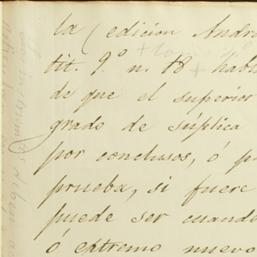 la edicion Andr
tit. 9.º n. 18 + hab
de que el superior
grado de súplica
por conclusos, ó p
prueba, si fuere
puede ser cuand
ó extremo nuevo